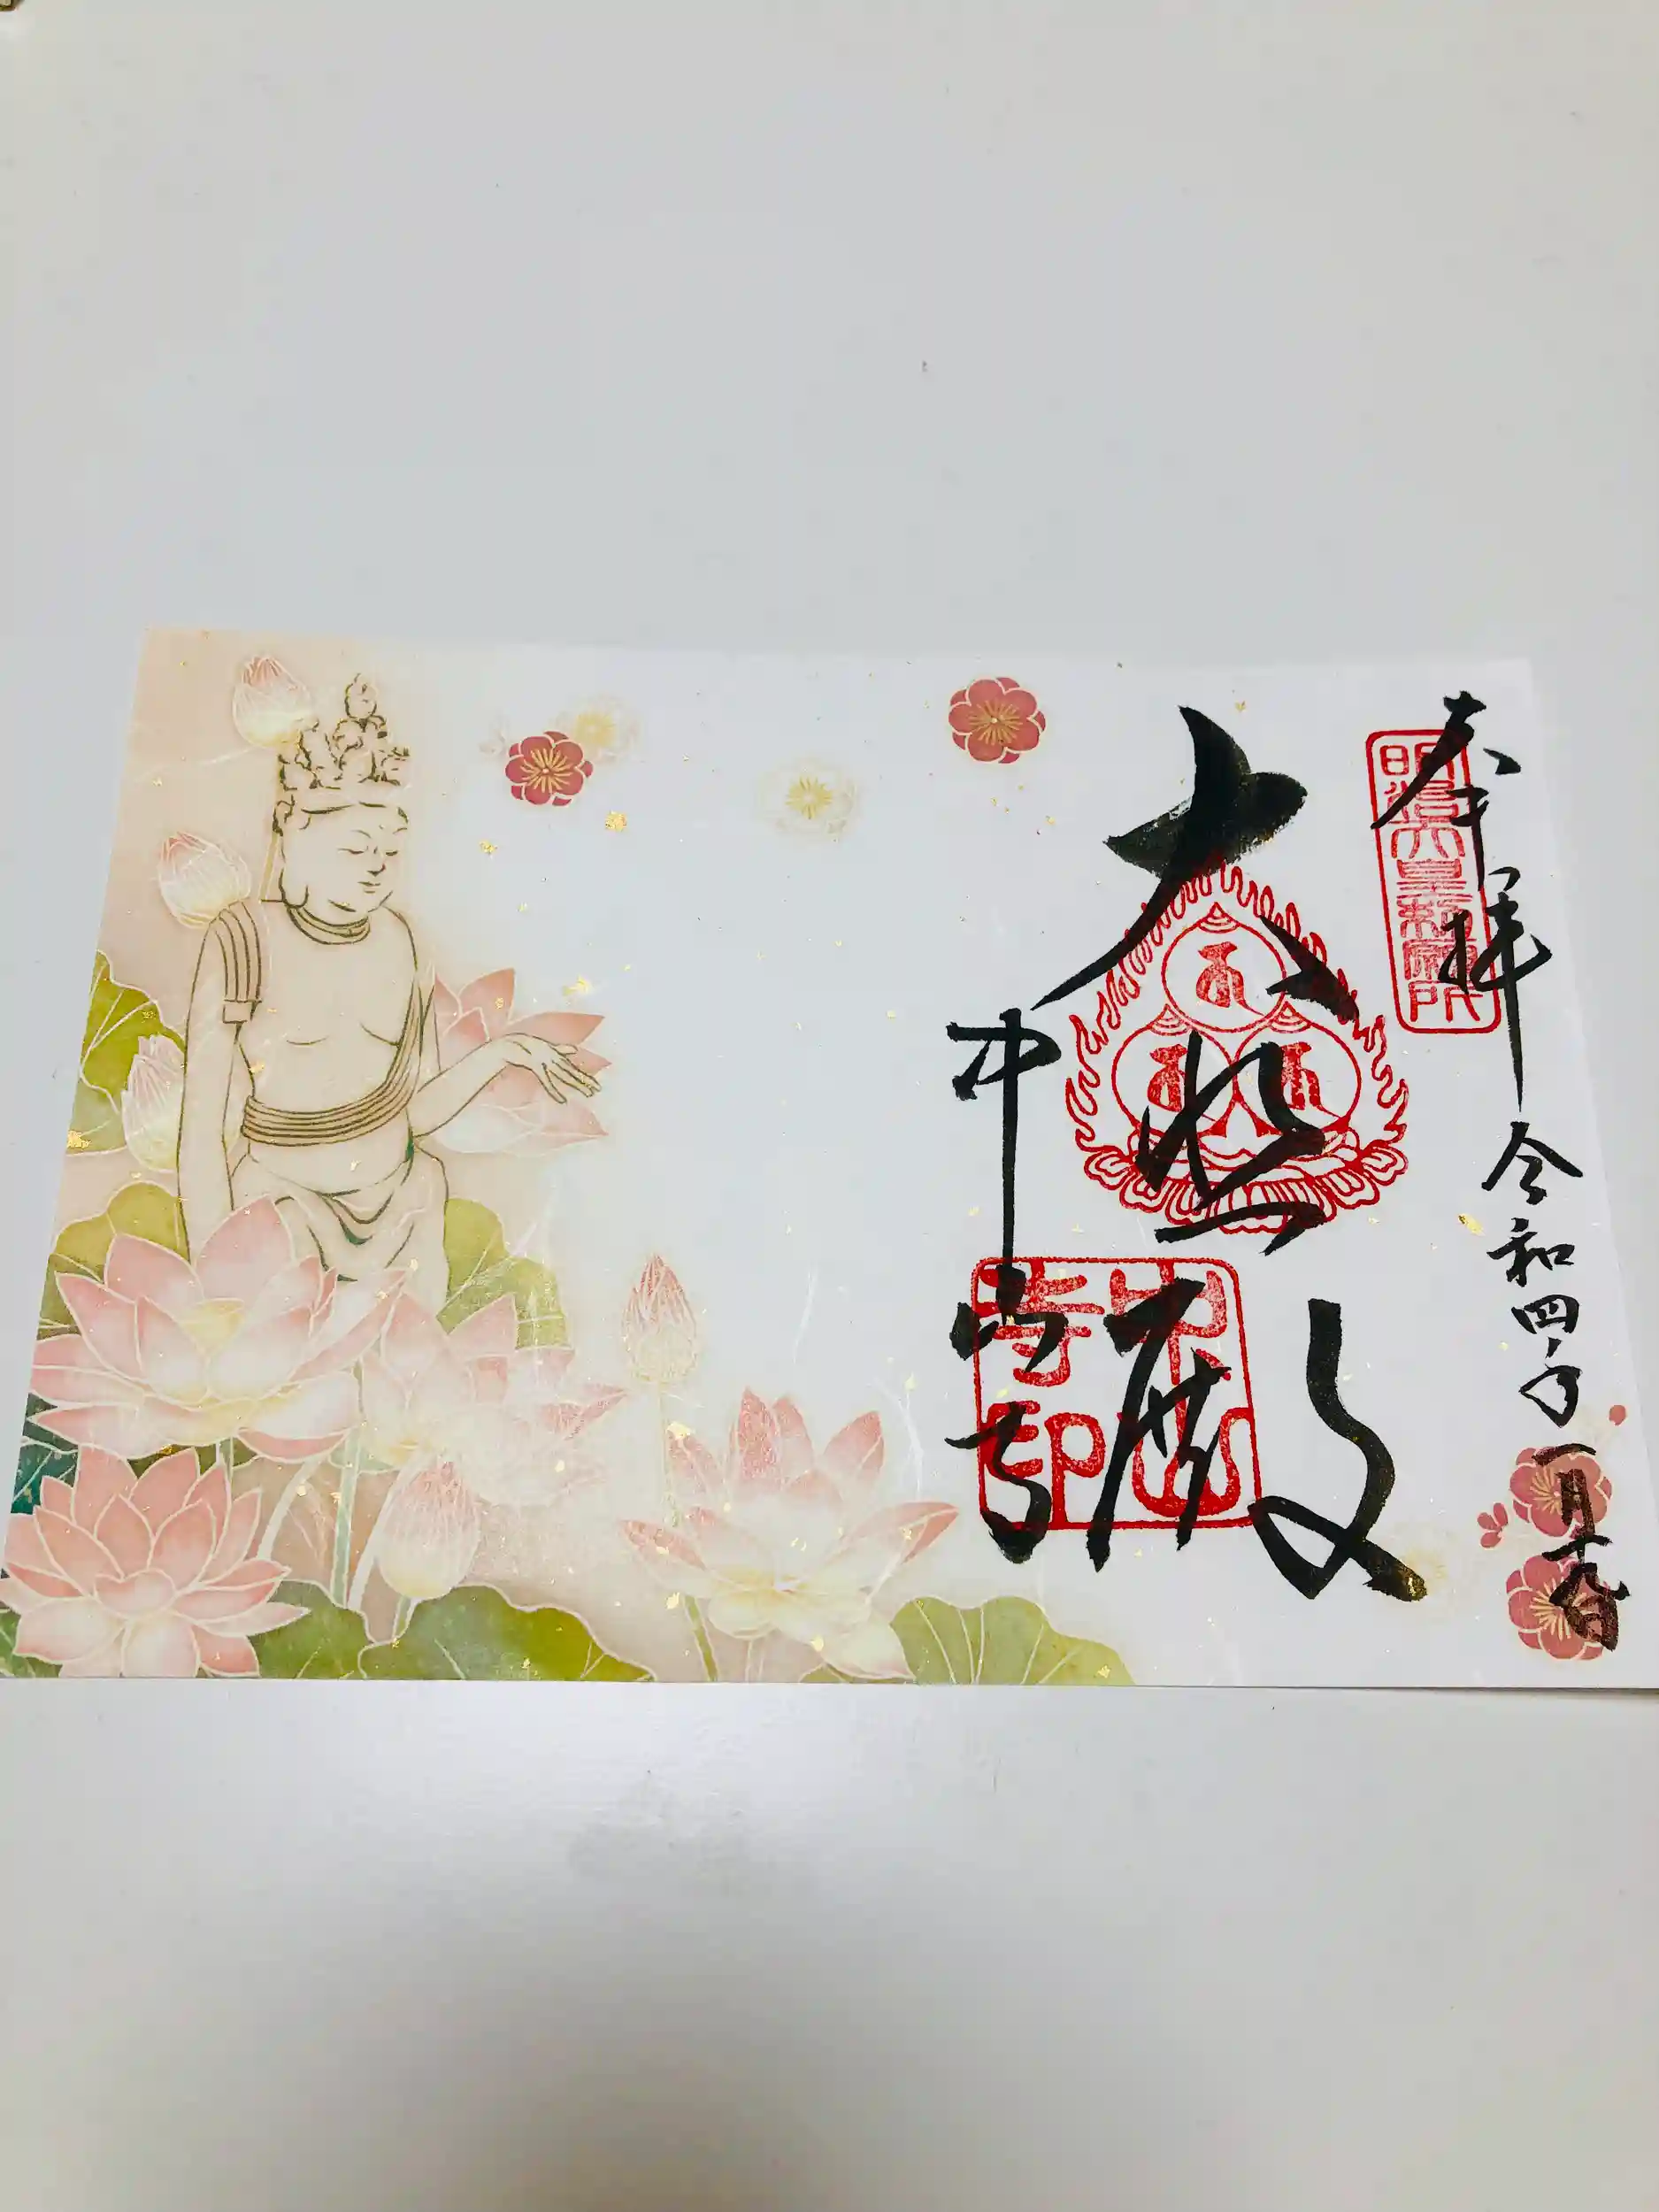 奉拝
令和四年
一月十八日
明治天皇勅願所
大悲殿
中山寺
中山寺印